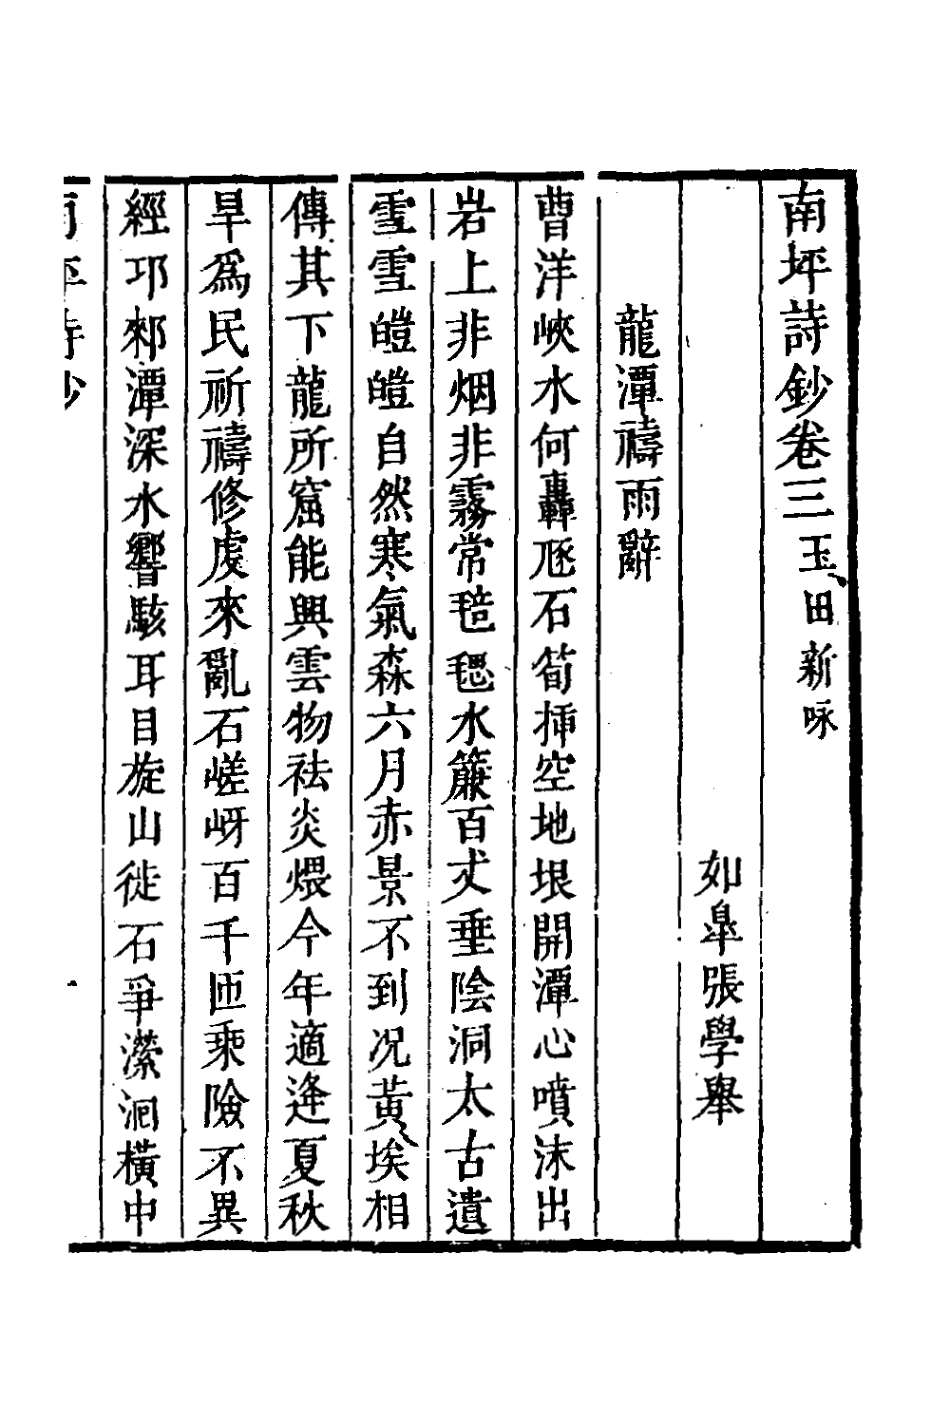 南坪詩鈔卷三玉田新咏
如臯張學舉
龍潭禱雨辭
曹洋峽水何轟豗石筍揷空地垠開潭心噴沫出
岩上非烟非霧常毰毸水簾百丈垂陰洞太古遺
雪雪皚皚自然寒氣森六月赤景不到况黃埃相
傳其下龍所窟能興雲物祛炎煨今年適逢夏秋
旱為民祈禱修虔來亂石嵯岈百千匝乘險不異
經邛郲潭深水響駭耳目旋山徙石爭瀠洄橫中
南坪詩鈔